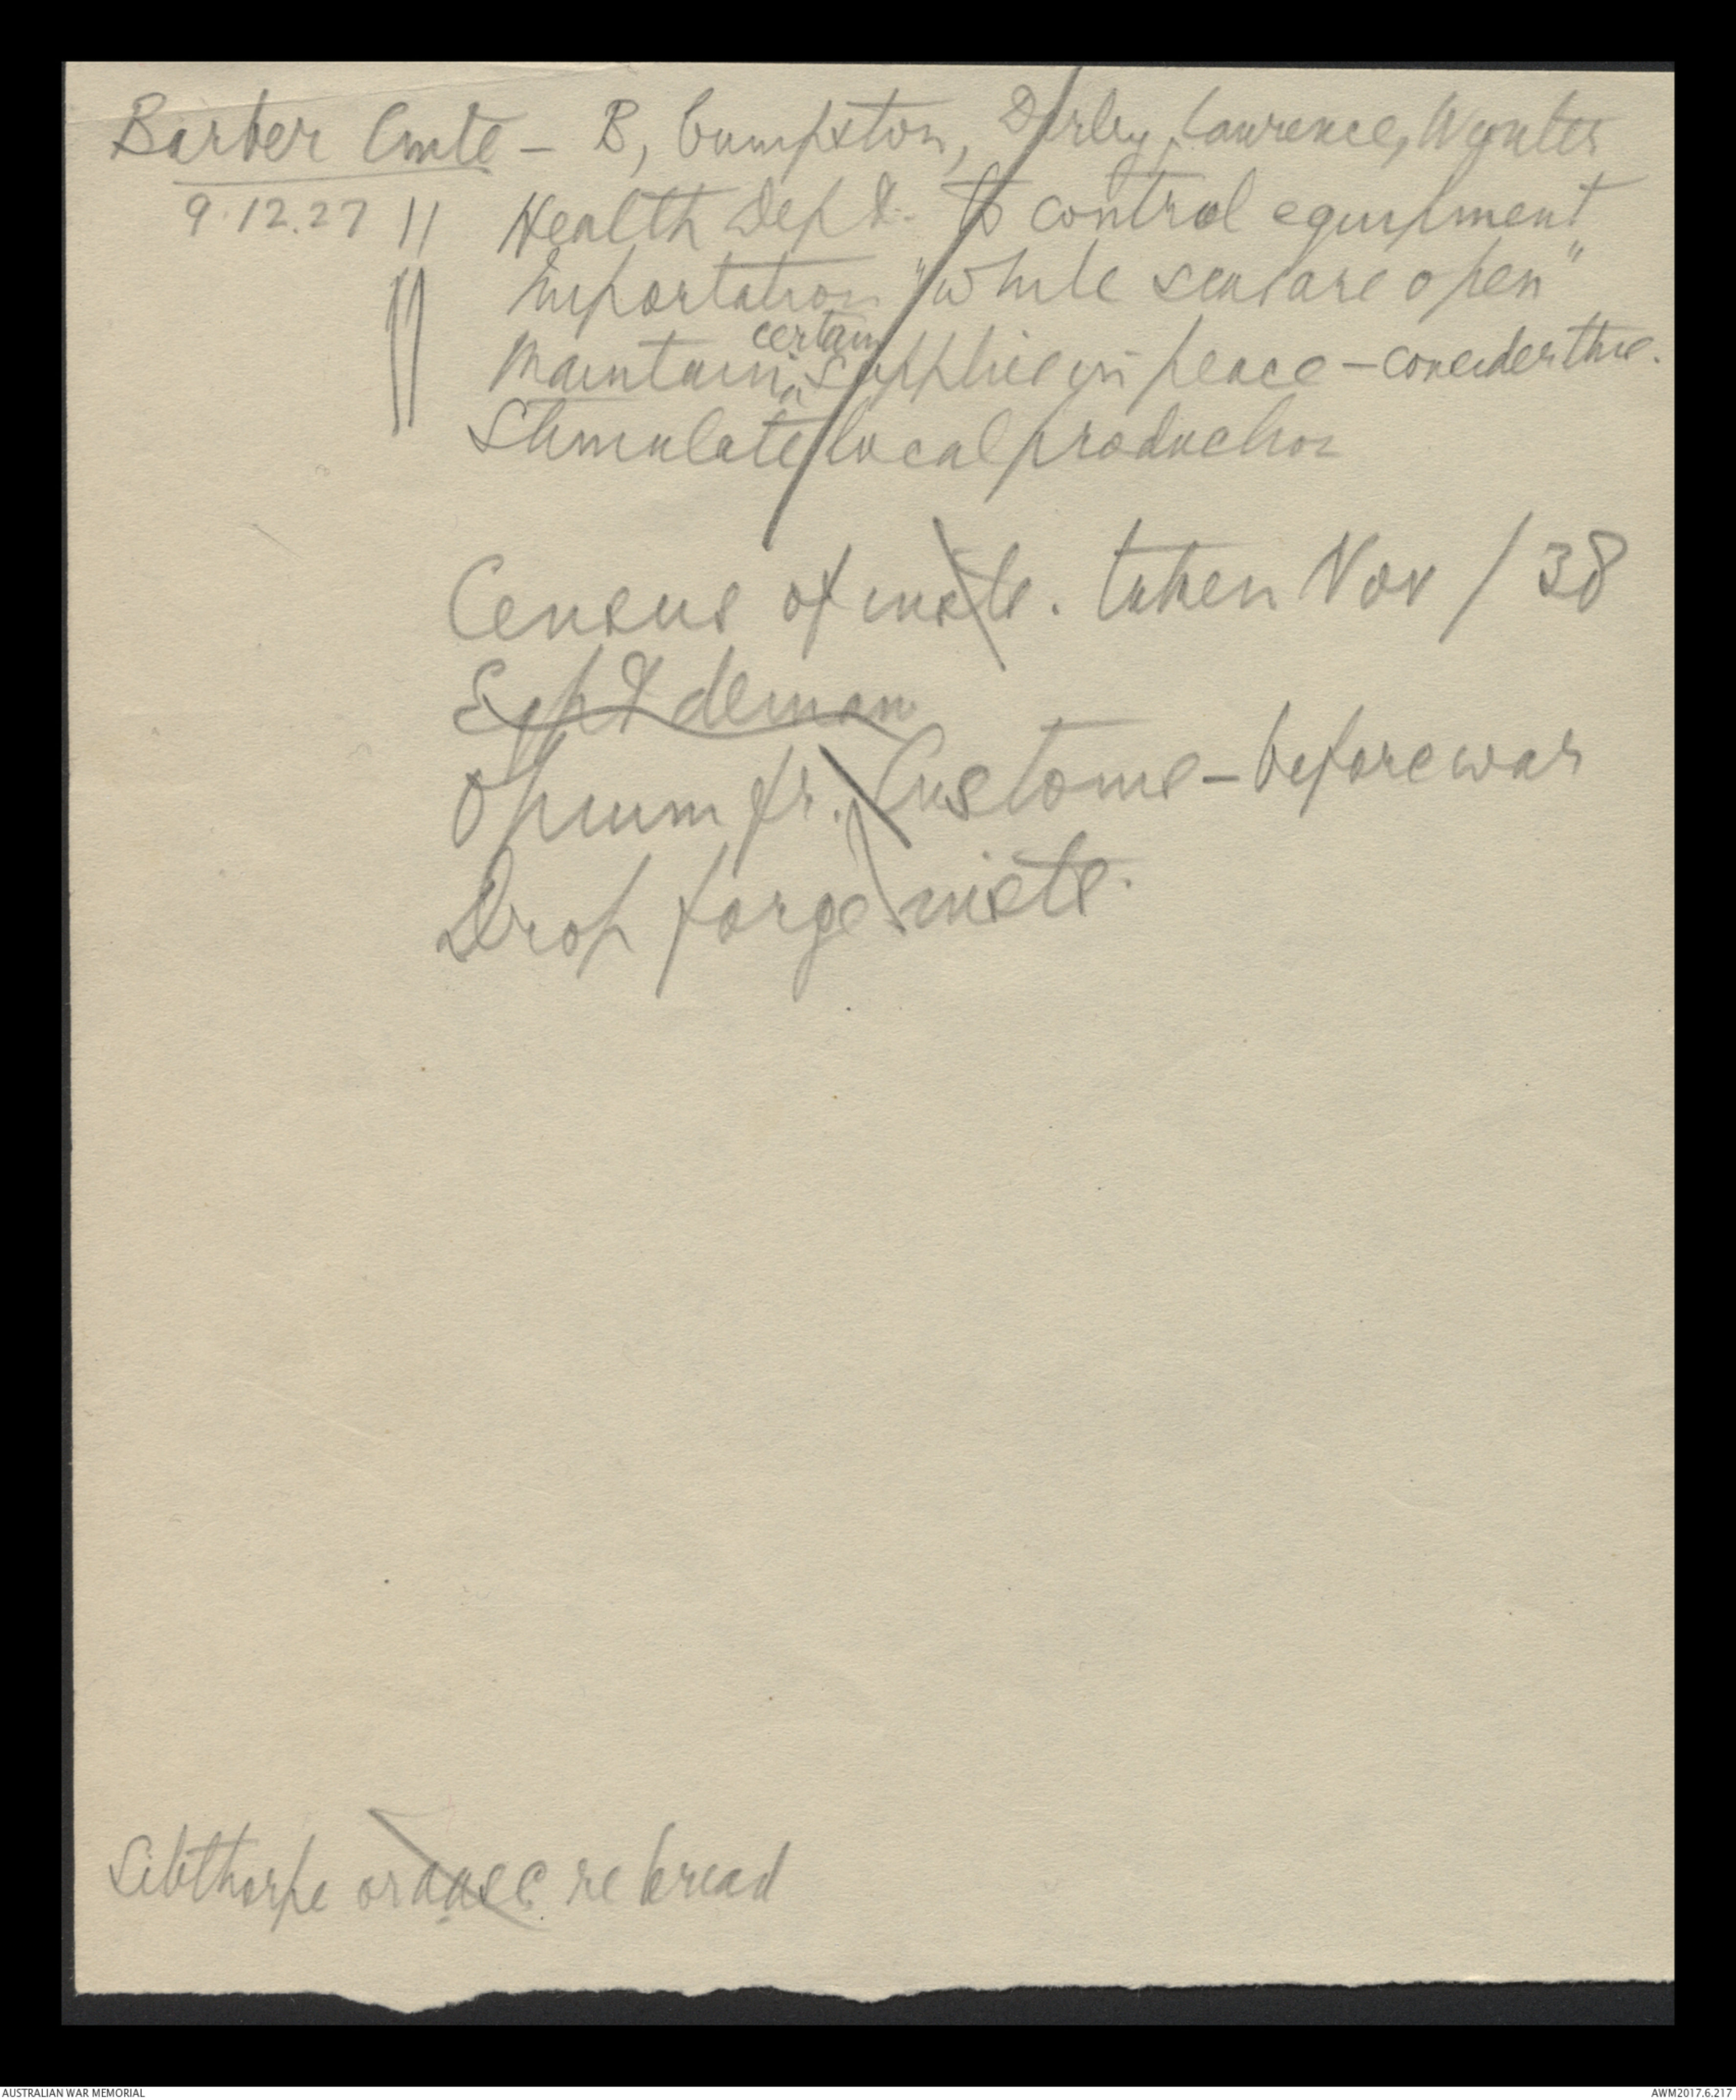 Barber Cmte - B, Cumpston, Derby, Lawrence, Wynter
9.12.27 || Health Dept. to control equipment
|| Importation "while seas are open"
Maintain certain supplies in peace - consider this.
Stimulate local production
Census of insts. taken Nov / 38
Eqpt deman
Opium fr. Customs - before war
Drop forge insts.
Sibthorpe or aasc. re bread
AUSTRALIAN WAR MEMORIAL
AWM2017.6.217